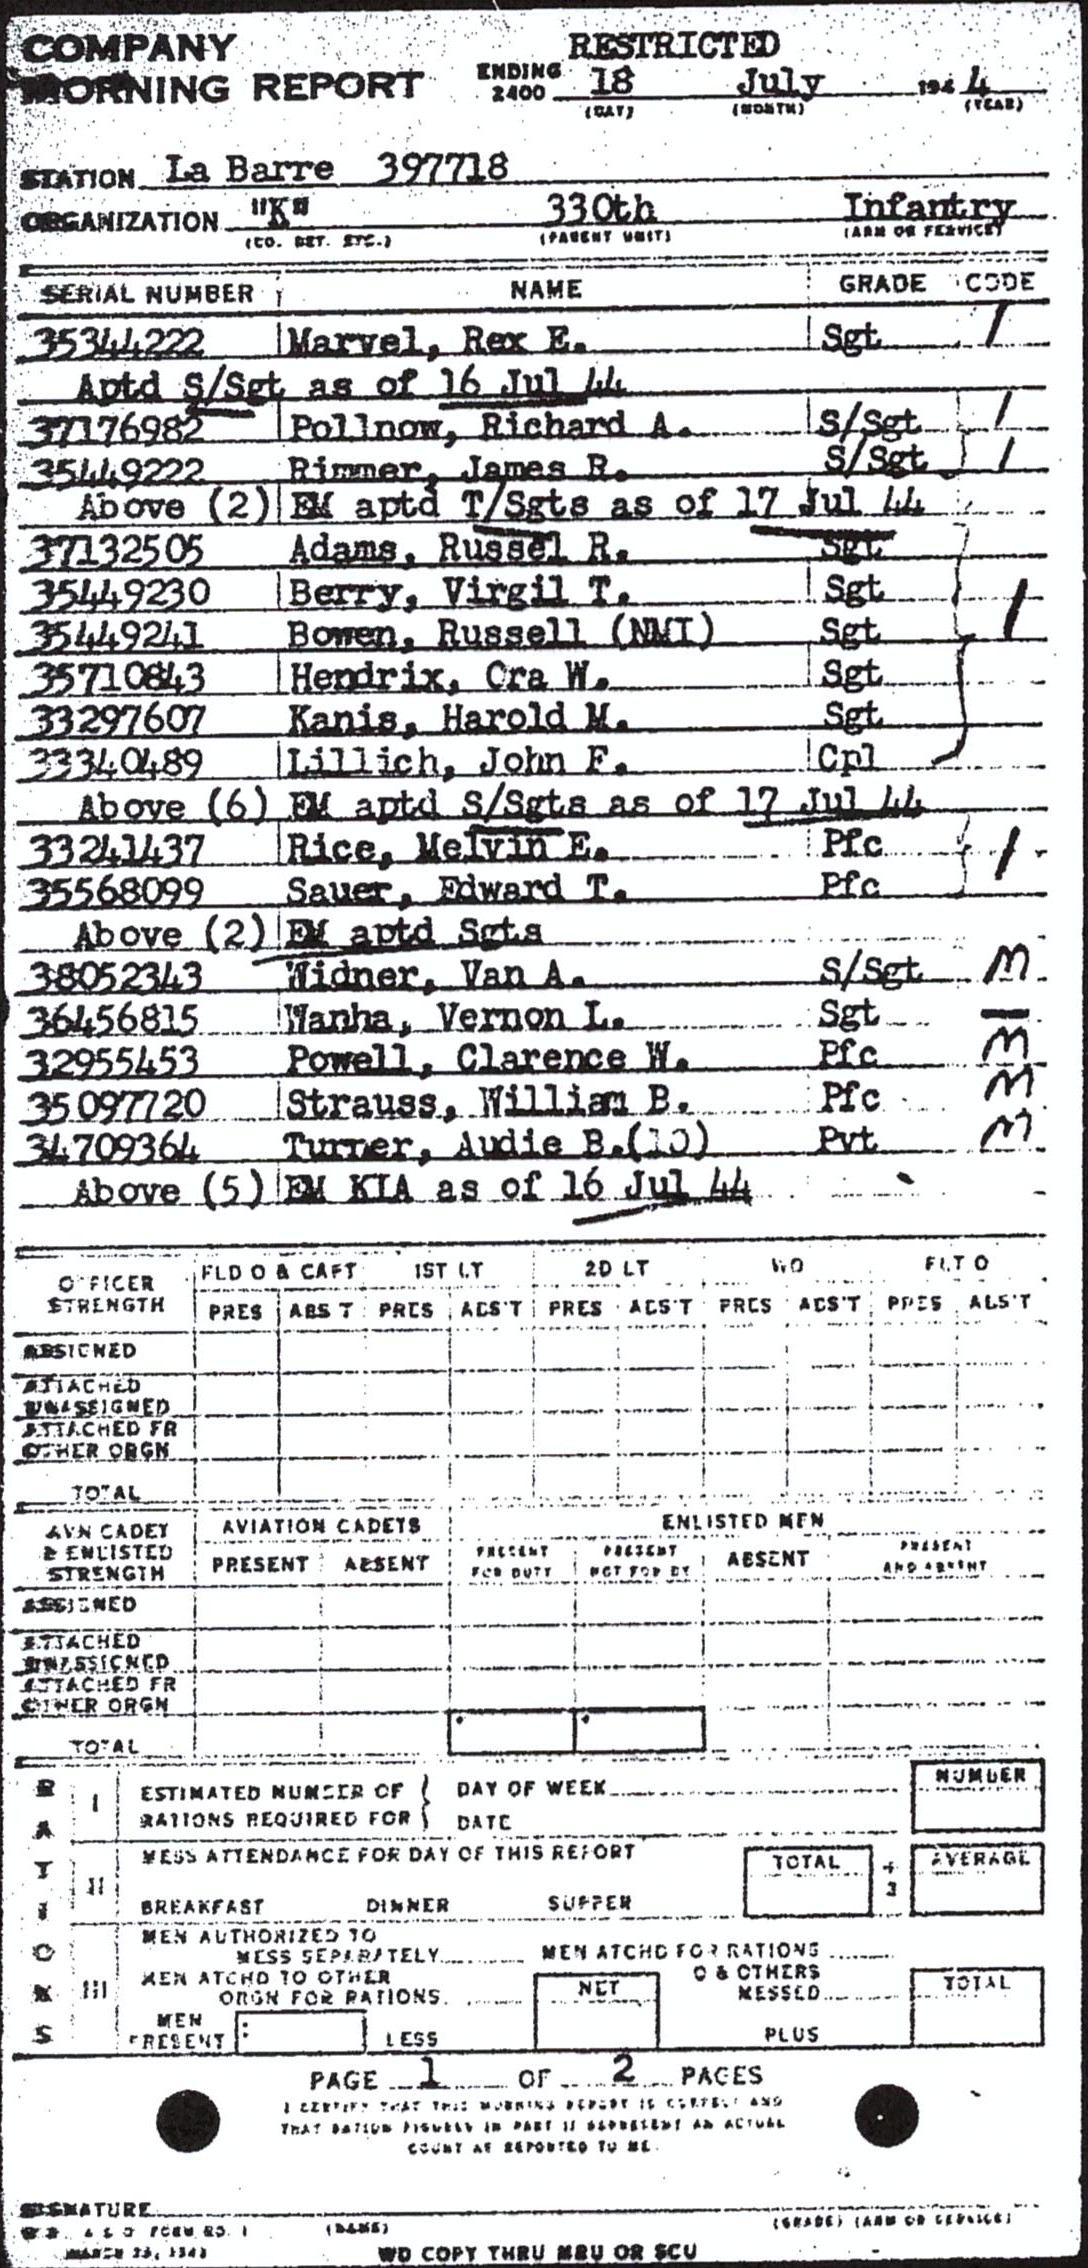 COMPANY RESTRICTED
MORNING REPORT ENDING 2400 18 July 1944
(DAY) (MONTH) (YEAR)
STATION La Barre 397718
ORGANIZATION "K" 330th Infantry
(CO. DET. ETC.) (PARENT UNIT) (ARM OR SERVICE)
SERIAL NUMBER NAME GRADE CODE
35344222 Marvel, Rex E. Sgt /
Aptd S/Sgt as of 16 Jul 44
37176982 Pollnow, Richard A. S/Sgt /
35449222 Rimmer, James R. S/Sgt /
Above (2) EM aptd T/Sgts as of 17 Jul 44
37132505 Adams, Russel R. Sgt
35449230 Berry, Virgil T. Sgt
35449241 Bowen, Russell (NMI) Sgt /
35710843 Hendrix, Ora W. Sgt
33297607 Kanis, Harold M. Sgt
33340489 Lillich, John F. Cpl
Above (6) EM aptd S/Sgts as of 17 Jul 44
33241437 Rice, Melvin E. Pfc /
35568099 Sauer, Edward T. Pfc
Above (2) EM aptd Sgts
38052343 Widner, Van A. S/Sgt M
36456815 Wanha, Vernon L. Sgt —
32955453 Powell, Clarence W. Pfc M
35097720 Strauss, William B. Pfc M
34709364 Turner, Audie B.(10) Pvt M
Above (5) EM KIA as of 16 Jul 44
OFFICER STRENGTH FLD O & CAPT 1ST LT 2D LT WO FLT O
PRES ABS'T PRES ABS'T PRES ABS'T PRES ABS'T PRES ABS'T
ASSIGNED
ATTACHED
UNASSIGNED
ATTACHED FR
OTHER ORGN
TOTAL
AVN CADET & ENLISTED STRENGTH AVIATION CADETS ENLISTED MEN
PRESENT ABSENT PRESENT FOR DUTY PRESENT NOT FOR DY ABSENT PRESENT AND ABSENT
ASSIGNED
ATTACHED
UNASSIGNED
ATTACHED FR
OTHER ORGN
TOTAL
RATIONS
I ESTIMATED NUMBER OF RATIONS REQUIRED FOR DAY OF WEEK NUMBER
DATE
II MESS ATTENDANCE FOR DAY OF THIS REPORT TOTAL ÷ 3 AVERAGE
BREAKFAST DINNER SUPPER
III MEN AUTHORIZED TO
MESS SEPARATELY MEN ATCHD FOR RATIONS
MEN ATCHD TO OTHER
ORGN FOR RATIONS NET O & OTHERS MESSED TOTAL
MEN PRESENT LESS PLUS
PAGE 1 OF 2 PAGES
I CERTIFY THAT THIS MORNING REPORT IS CORRECT AND
THAT RATION FIGURES IN PART II REPRESENT AN ACTUAL
COUNT AS REPORTED TO ME.
SIGNATURE
W.D. A G O FORM NO. 1 (NAME) (GRADE) (ARM OR SERVICE)
MARCH 23, 1943
WD COPY THRU MRU OR SCU